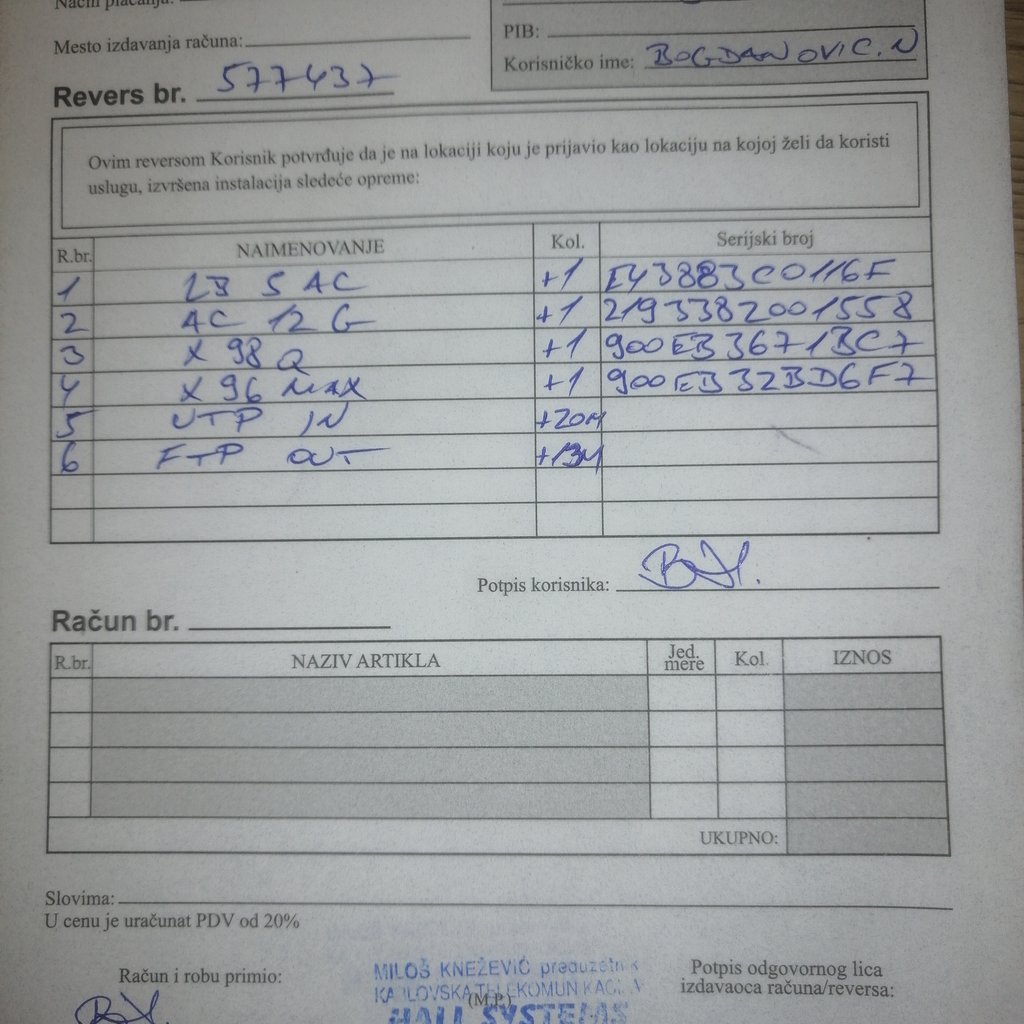 Način plaćanja:
Mesto izdavanja računa:
PIB:
Korisničko ime: BOGDANOVIC.N
Revers br. 577437
Ovim reversom Korisnik potvrđuje da je na lokaciji koju je prijavio kao lokaciju na kojoj želi da koristi
uslugu, izvršena instalacija sledeće opreme:
R.br. NAIMENOVANJE Kol. Serijski broj
1 LB 5 AC +1 E43883C0116F
2 AC 12 G +1 2193382001558
3 X 98 Q +1 900EB3671BC7
4 X 96 MAX +1 900EB32BD6F7
5 UTP IN +20M
6 FTP OUT +13M
Potpis korisnika:
Račun br.
R.br. NAZIV ARTIKLA Jed. mere Kol. IZNOS
UKUPNO:
Slovima:
U cenu je uračunat PDV od 20%
Račun i robu primio:
MILOŠ KNEŽEVIĆ preduzetnik
(M.P.)
HALL SYSTEMS
Potpis odgovornog lica
izdavaoca računa/reversa: